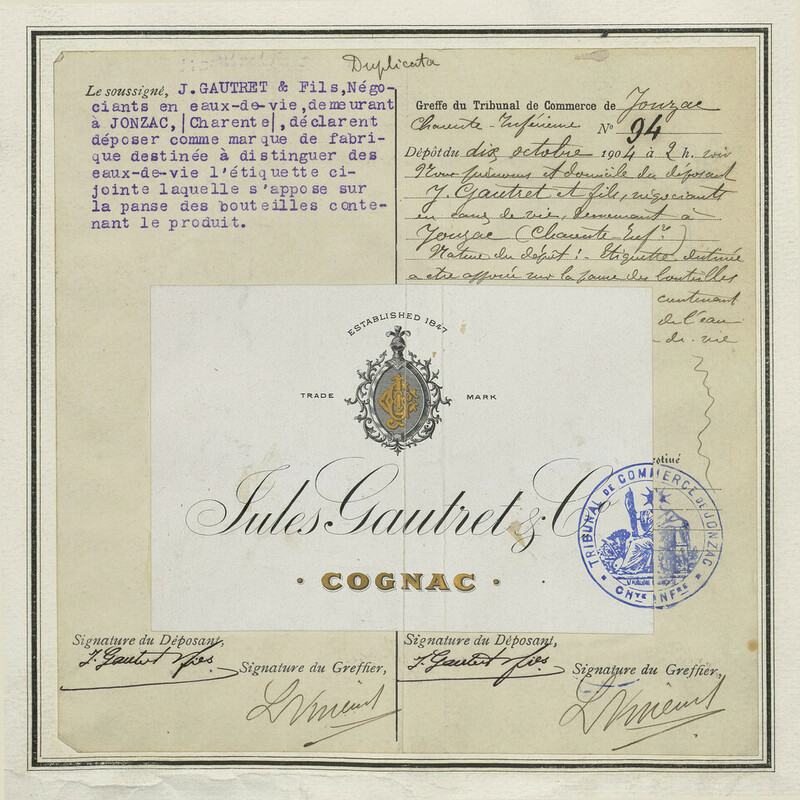 Duplicata
Le soussigné, J.GAUTRET & Fils,Négo-
ciants en eaux-de-vie,demeurant
à JONZAC,|Charente|,déclarent
déposer comme marque de fabri-
que destinée à distinguer des
eaux-de-vie l'étiquette ci-
jointe laquelle s'appose sur
la panse des bouteilles conte-
nant le produit.
Greffe du Tribunal de Commerce de Jonzac
Charente-Inférieure N° 94
Dépôt du dix octobre 1904 à 2 h. soir
Nom prénoms et domicile du déposant
J. Gautret et fils, négociants
en eaux de vie, demeurant à
Jonzac (Charente Infre)
Nature du dépôt : Etiquette destinée
a etre apposée sur la panse des bouteilles
contenant
de l'eau
de-vie
ESTABLISHED 1847
TRADE MARK
Jules Gautret & Co
• COGNAC •
TRIBUNAL DE COMMERCE DE JONZAC
CHTE INFRE
Signature du Déposant,
J. Gautret & fils
Signature du Greffier,
Signature du Déposant,
J. Gautret & fils
Signature du Greffier,